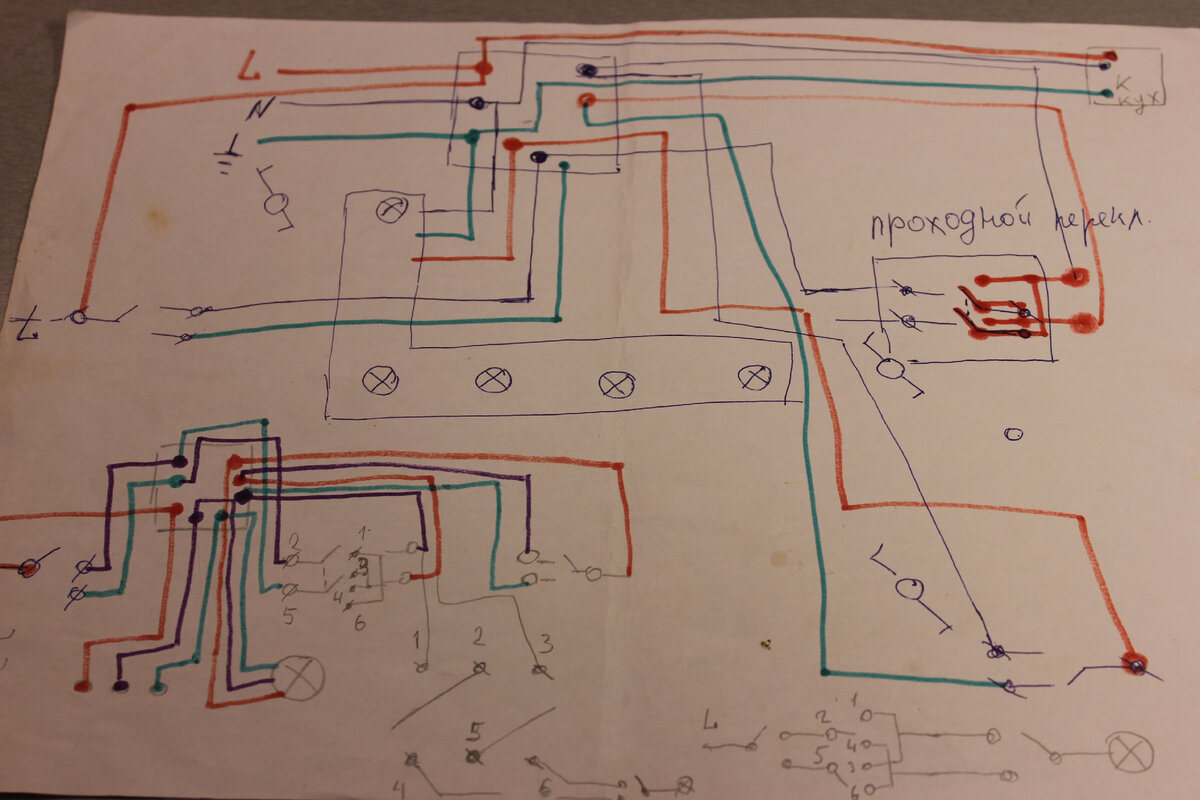 L
N
К
кух
проходной перекл.
L
2
1
3
4
5
6
1
2
3
5
4
6
L
2
1
5
4
3
6